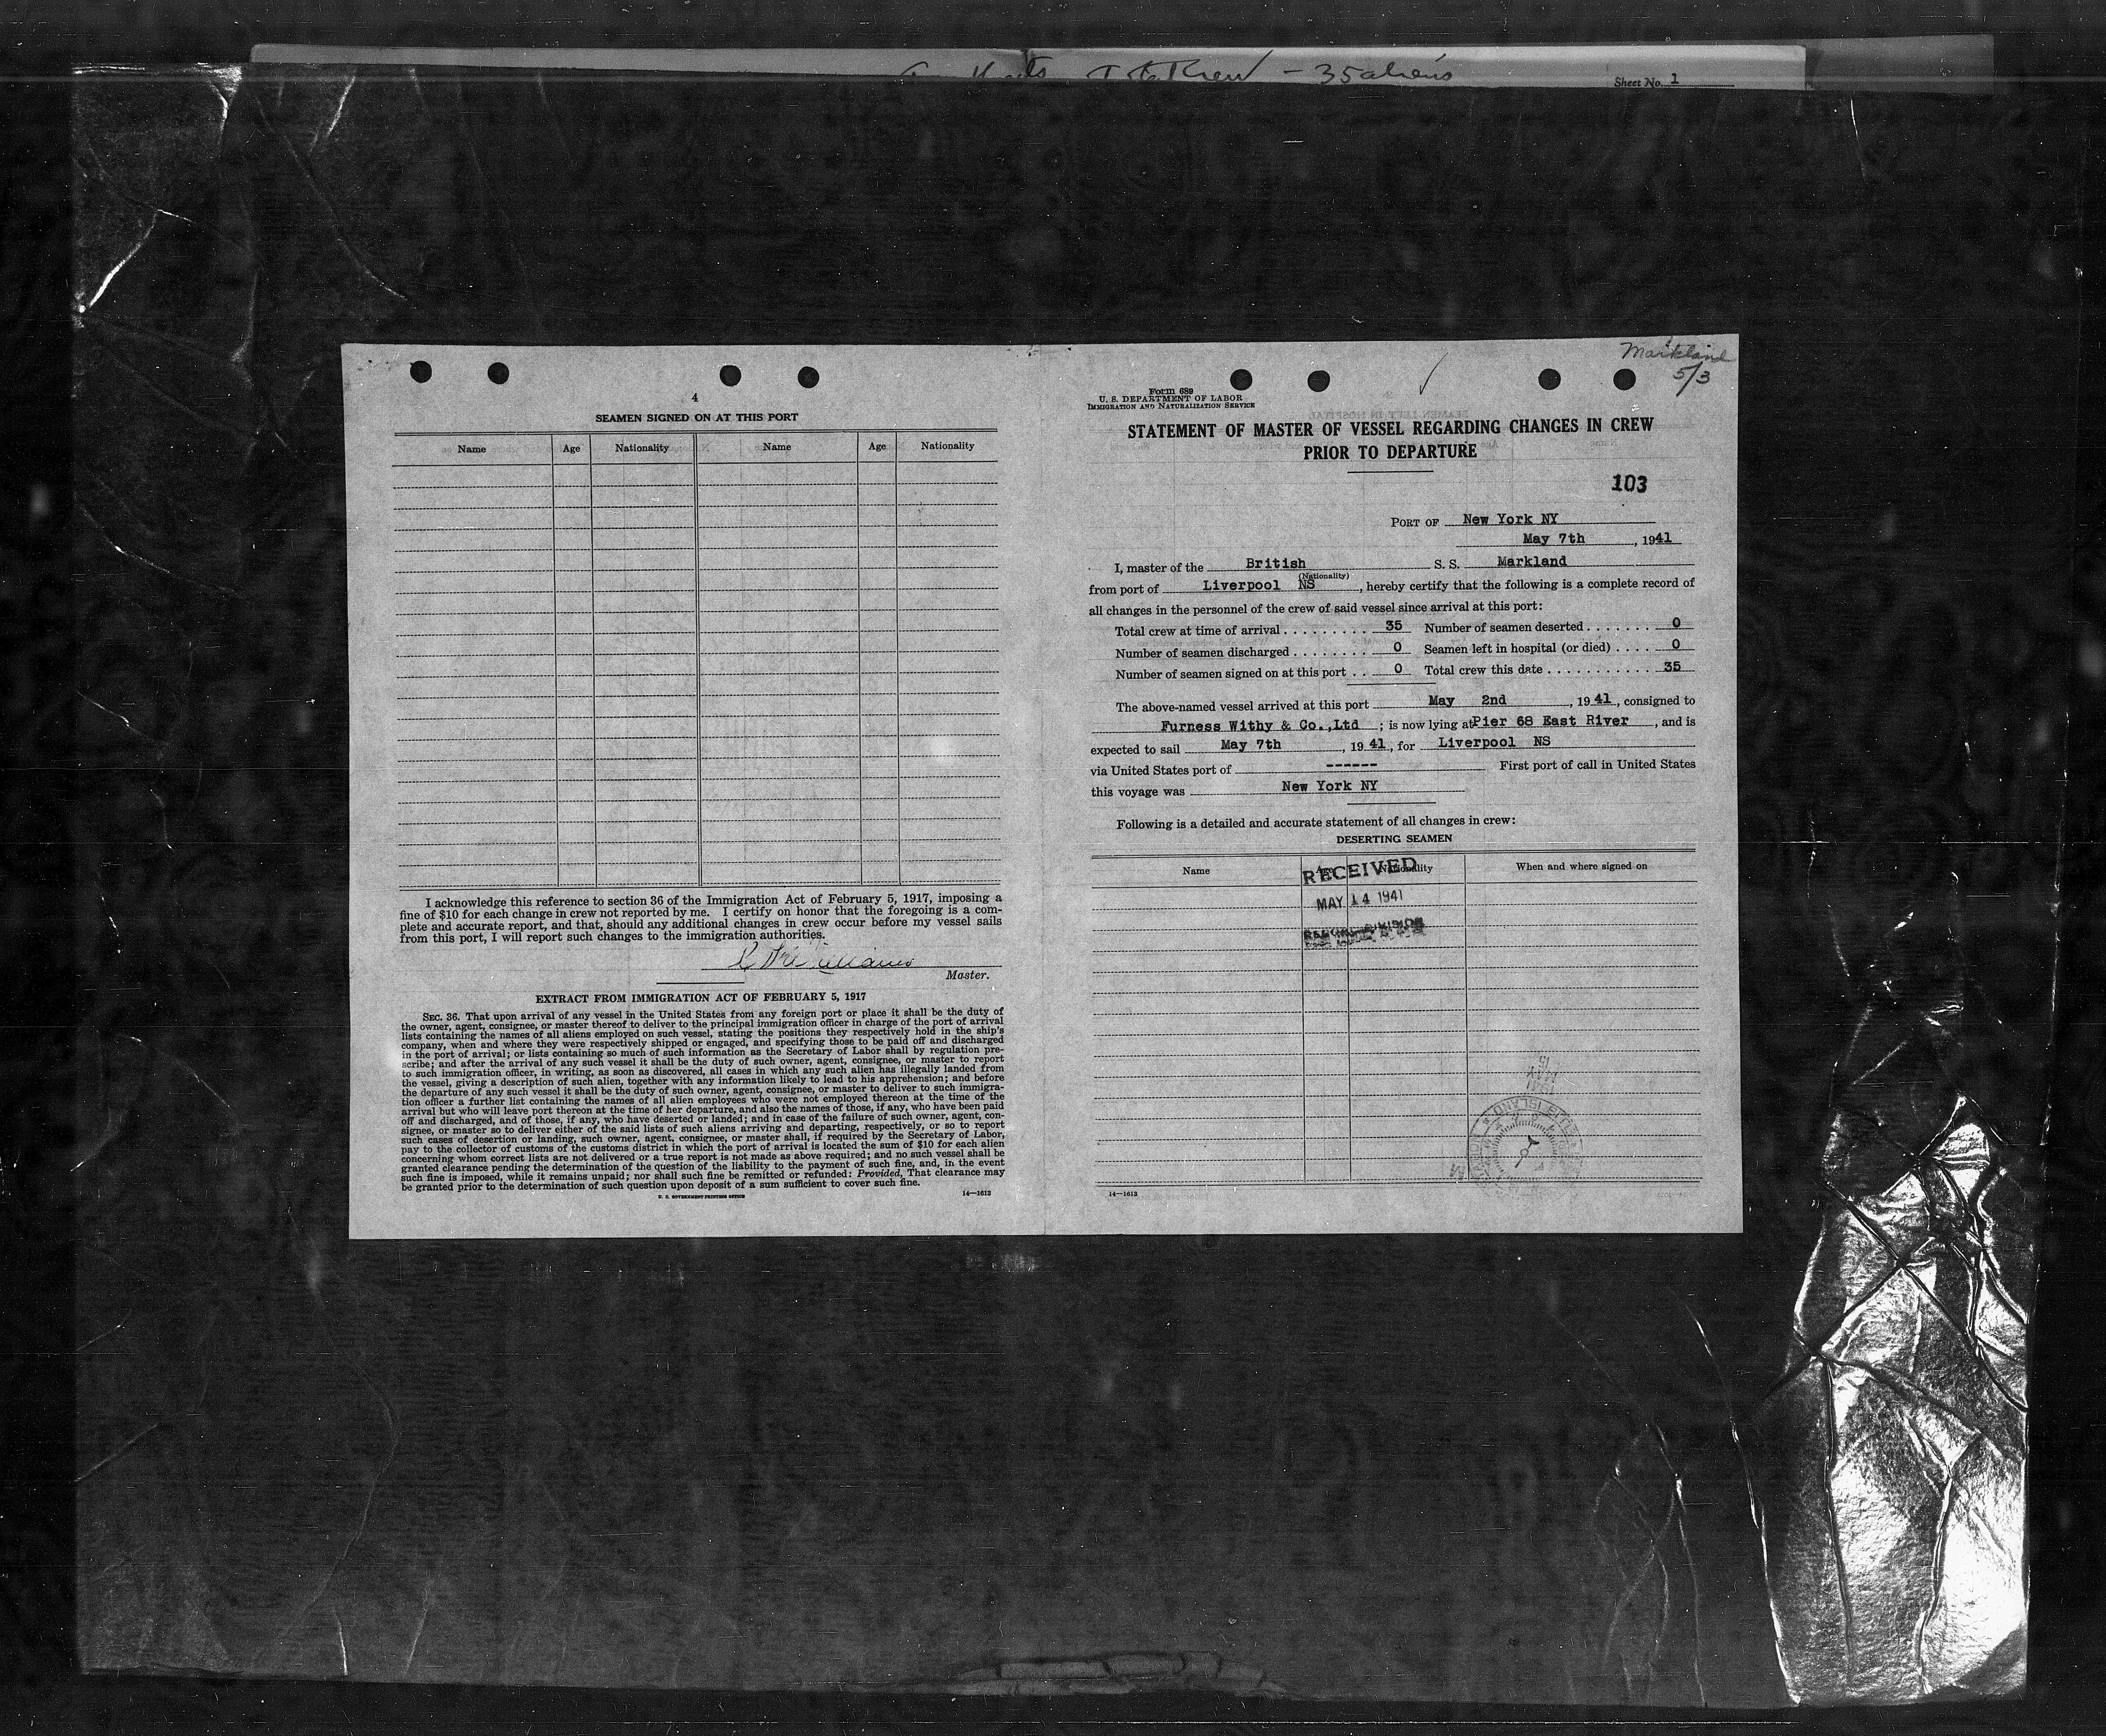 35 aliens
Sheet No. 1
4
SEAMEN SIGNED ON AT THIS PORT
Name Age Nationality Name Age Nationality
I acknowledge this reference to section 36 of the Immigration Act of February 5, 1917, imposing a
fine of $10 for each change in crew not reported by me. I certify on honor that the foregoing is a com-
plete and accurate report, and that, should any additional changes in crew occur before my vessel sails
from this port, I will report such changes to the immigration authorities.
Master.
EXTRACT FROM IMMIGRATION ACT OF FEBRUARY 5, 1917
SEC. 36. That upon arrival of any vessel in the United States from any foreign port or place it shall be the duty of
the owner, agent, consignee, or master thereof to deliver to the principal immigration officer in charge of the port of arrival
lists containing the names of all aliens employed on such vessel, stating the positions they respectively hold in the ship's
company, when and where they were respectively shipped or engaged, and specifying those to be paid off and discharged
in the port of arrival; or lists containing so much of such information as the Secretary of Labor shall by regulation pre-
scribe; and after the arrival of any such vessel it shall be the duty of such owner, agent, consignee, or master to report
to such immigration officer, in writing, as soon as discovered, all cases in which any such alien has illegally landed from
the vessel, giving a description of such alien, together with any information likely to lead to his apprehension; and before
the departure of any such vessel it shall be the duty of such owner, agent, consignee, or master to deliver to such immigra-
tion officer a further list containing the names of all alien employees who were not employed thereon at the time of the
arrival but who will leave port thereon at the time of her departure, and also the names of those, if any, who have been paid
off and discharged, and of those, if any, who have deserted or landed; and in case of the failure of such owner, agent, con-
signee, or master so to deliver either of the said lists of such aliens arriving and departing, respectively, or so to report
such cases of desertion or landing, such owner, agent, consignee, or master shall, if required by the Secretary of Labor,
pay to the collector of customs of the customs district in which the port of arrival is located the sum of $10 for each alien
concerning whom correct lists are not delivered or a true report is not made as above required; and no such vessel shall be
granted clearance pending the determination of the question of the liability to the payment of such fine, and, in the event
such fine is imposed, while it remains unpaid; nor shall such fine be remitted or refunded: Provided, That clearance may
be granted prior to the determination of such question upon deposit of a sum sufficient to cover such fine.
U. S. GOVERNMENT PRINTING OFFICE 14—1613
Markland
5/3
Form 689
U. S. DEPARTMENT OF LABOR
IMMIGRATION AND NATURALIZATION SERVICE
STATEMENT OF MASTER OF VESSEL REGARDING CHANGES IN CREW
PRIOR TO DEPARTURE
103
PORT OF New York NY
May 7th, 1941
I, master of the British S. S. Markland
(Nationality)
from port of Liverpool NS, hereby certify that the following is a complete record of
all changes in the personnel of the crew of said vessel since arrival at this port:
Total crew at time of arrival . . . . . . . . . 35 Number of seamen deserted . . . . . . . 0
Number of seamen discharged . . . . . . . . 0 Seamen left in hospital (or died) . . . . 0
Number of seamen signed on at this port . . 0 Total crew this date . . . . . . . . . . . 35
The above-named vessel arrived at this port May 2nd, 1941, consigned to
Furness Withy & Co.,Ltd ; is now lying at Pier 68 East River, and is
expected to sail May 7th, 1941, for Liverpool NS
via United States port of ------ First port of call in United States
this voyage was New York NY
Following is a detailed and accurate statement of all changes in crew:
DESERTING SEAMEN
Name Age Nationality When and where signed on
RECEIVED
MAY 14 1941
14—1613